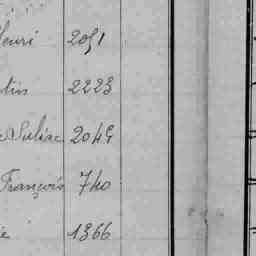 Henri 2051
2223
e Suliac 2045
François 740
ie 1366